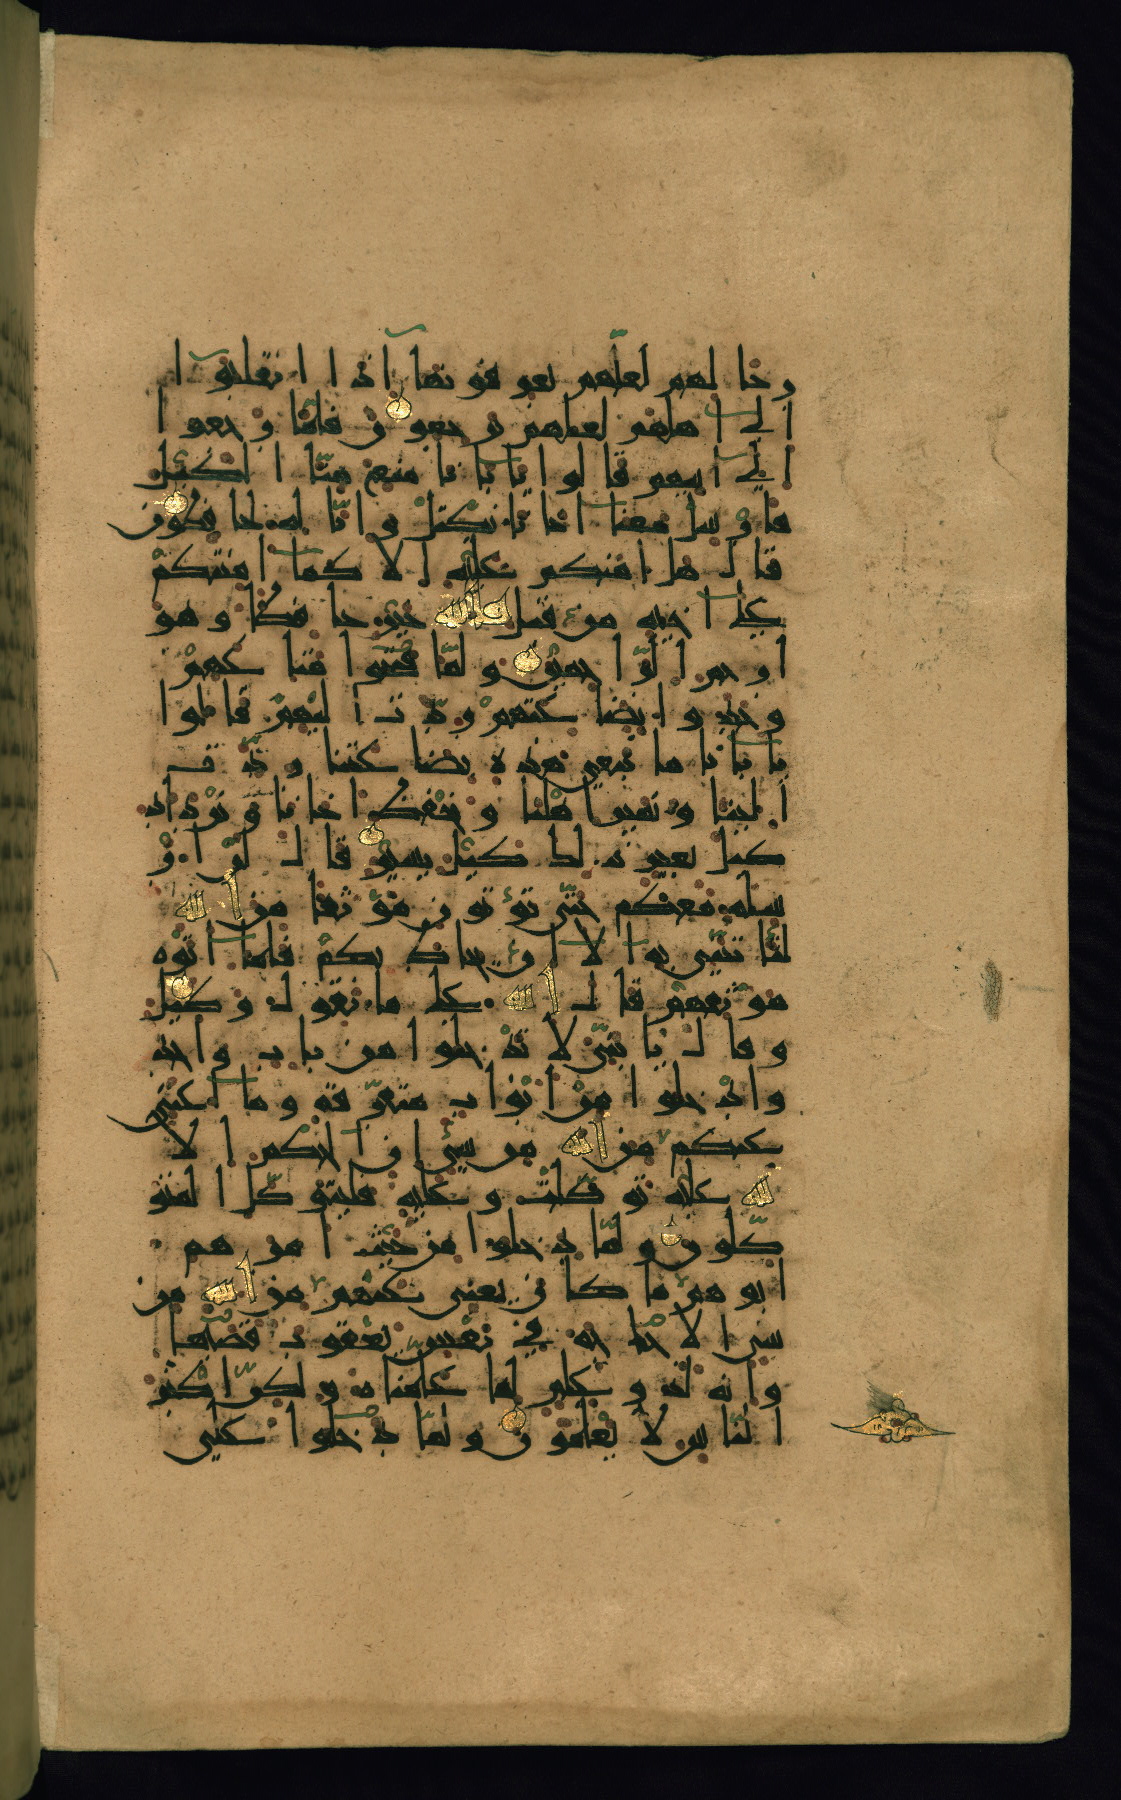 رحالهم لعلهم يعرفونها اذا انقلبوا
الى اهلهم لعلهم يرجعون فلما رجعوا
الى ابيهم قالوا يا ابانا منع منا الكيل
فارسل معنا اخانا نكتل وانا له لحافظون
قال هل امنكم عليه الا كما امنتكم
على اخيه من قبل فالله خير حافظا وهو
ارحم الراحمين ولما فتحوا متاعهم
وجدوا بضاعتهم ردت اليهم قالوا
يا ابانا ما نبغي هذه بضاعتنا ردت
الينا ونمير اهلنا ونحفظ اخانا ونزداد
كيل بعير ذلك كيل يسير قال لن ار
سله معكم حتى تؤتون موثقا من الله
لتأتنني به الا ان يحاط بكم فلما اتوه
موثقهم قال الله على ما نقول وكيل
وقال يا بني لا تدخلوا من باب واحد
وادخلوا من ابواب متفرقة وما اغني
عنكم من الله من شيء ان الحكم الا
لله عليه توكلت وعليه فليتوكل المتو
كلون ولما دخلوا من حيث امرهم
ابوهم ما كان يغني عنهم من الله من
شيء الا حاجة في نفس يعقوب قضاها
وانه لذو علم لما علمناه ولكن اكثر
الناس لا يعلمون ولما دخلوا على